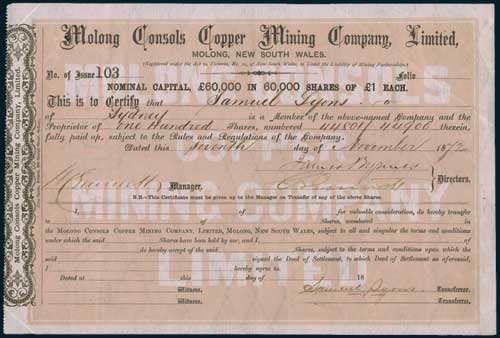 Molong Consols Copper Mining Company, Limited.
Molong Consols Copper Mining Company, Limited,
MOLONG, NEW SOUTH WALES.
(Registered under the Act 24 Victoria, No. 21, of New South Wales, to Limit the Liability of Mining Partnerships.)
No. of Issue 103 Folio
NOMINAL CAPITAL, £60,000 IN 60,000 SHARES OF £1 EACH.
This is to Certify that Samuel Lyons
of Sydney is a Member of the above-named Company and the
Proprietor of One Hundred Shares, numbered therein,
fully paid up, subject to the Rules and Regulations of the Company.
Dated this Seventh day of November 187
James Byrnes
Manager. Directors.
N.B.—This Certificate must be given up to the Manager on Transfer of any of the above Shares.
I, of for valuable consideration, do hereby transfer
to of Shares in
the MOLONG CONSOLS COPPER MINING COMPANY, LIMITED, MOLONG, NEW SOUTH WALES, subject to all and singular the terms and conditions
under which the said Shares have been held by me; and I, of
do hereby accept of the said Shares, subject to the terms and conditions upon which the
said signed the Deed of Settlement, to which Deed of Settlement, as aforesaid,
I hereby agree to.
Dated at this day of 18
Witness. Samuel Lyons Transferror.
Witness. Transferree.
MOLONG CONSOLS
COPPER
MINING COMPANY
LIMITED